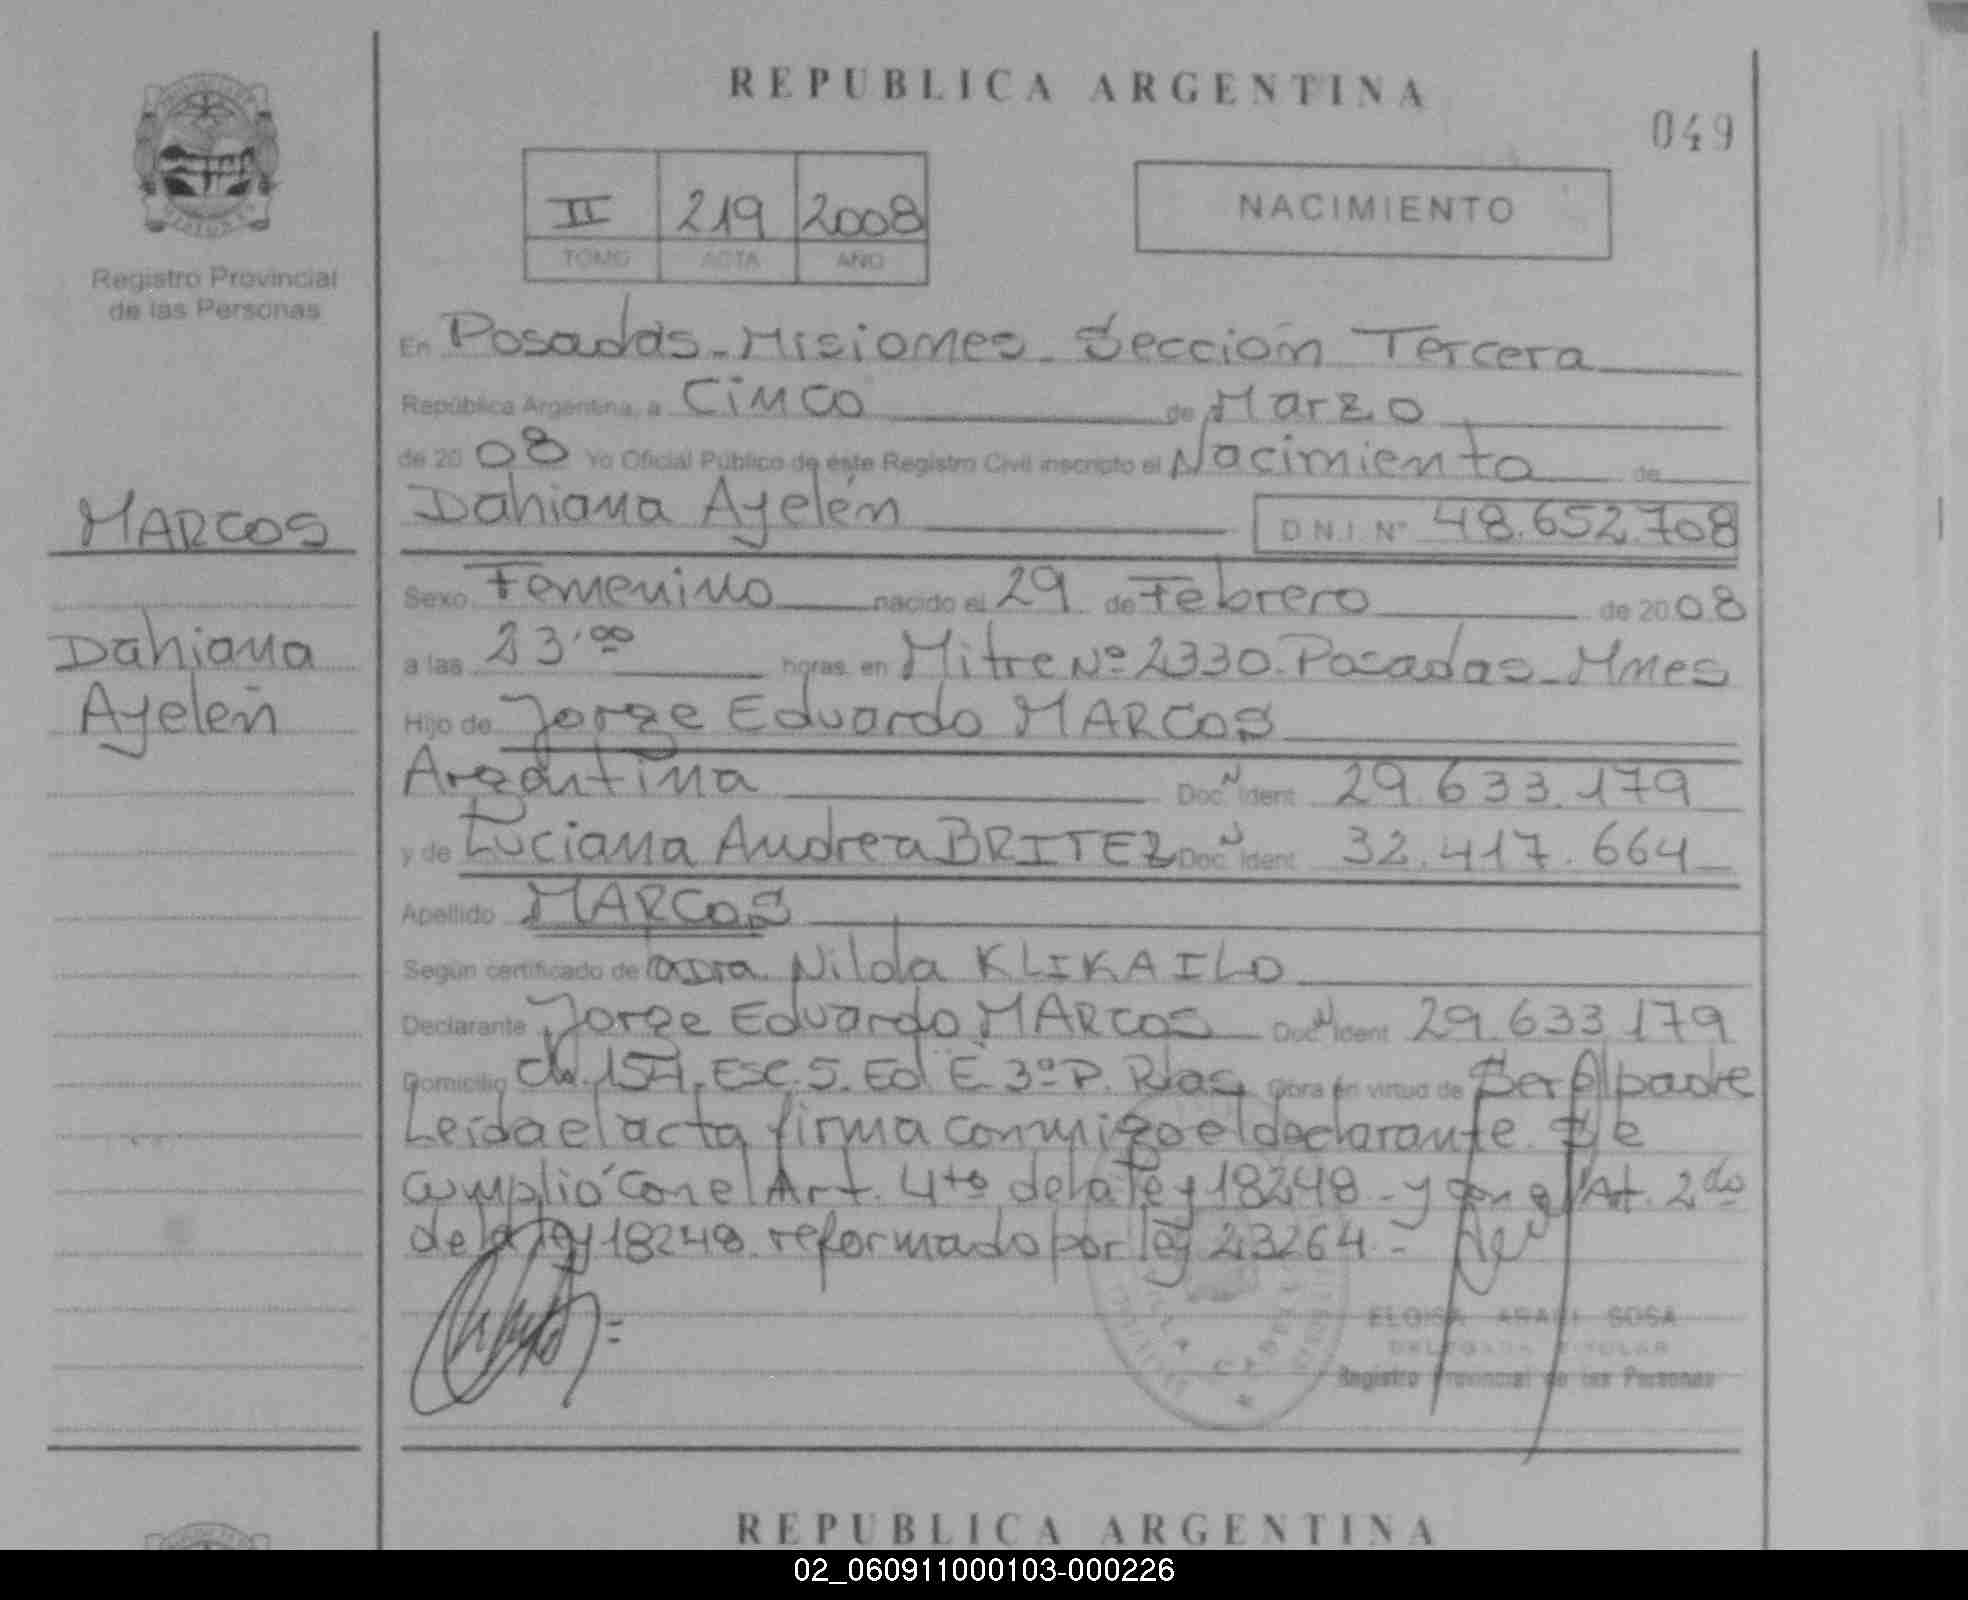 REPUBLICA ARGENTINA
049
II 219 2008
TOMO ACTA AÑO
NACIMIENTO
Registro Provincial
de las Personas
En Posadas - Misiones - Sección Tercera
República Argentina, a Cinco de Marzo
de 2008 Yo Oficial Público de este Registro Civil inscripto el Nacimiento de
MARCOS
Dahiana Ayelén D.N.I. Nº 48.652.708
Sexo Femenino nacido el 29 de Febrero de 2008
Dahiana
a las 23,00 horas en Mitre Nº 2330. Posadas - Mnes
Ayelén
Hijo de Jorge Eduardo MARCOS
Argentina Doc. N Ident 29.633.179
y de Luciana Andrea BRITEZ Doc. N Ident 32.417.664
Apellido MARCOS
Según certificado de la Dra. Nilda KLIKAILO
Declarante Jorge Eduardo MARCOS Doc. N Ident 29.633.179
Domicilio Ch. 154. Esc. 5. Ed E. 3º P. Pdas. Obra en virtud de Ser el padre
Leída el acta firma conmigo el declarante. Se
cumplió con el Art. 4to de la ley 18248 - y con el Art. 2do
de la ley 18248 reformado por ley 23264 -
ELOISA SOSA
DELEGADA TITULAR
Registro Provincial de las Personas
REPUBLICA ARGENTINA
02_060911000103-000226